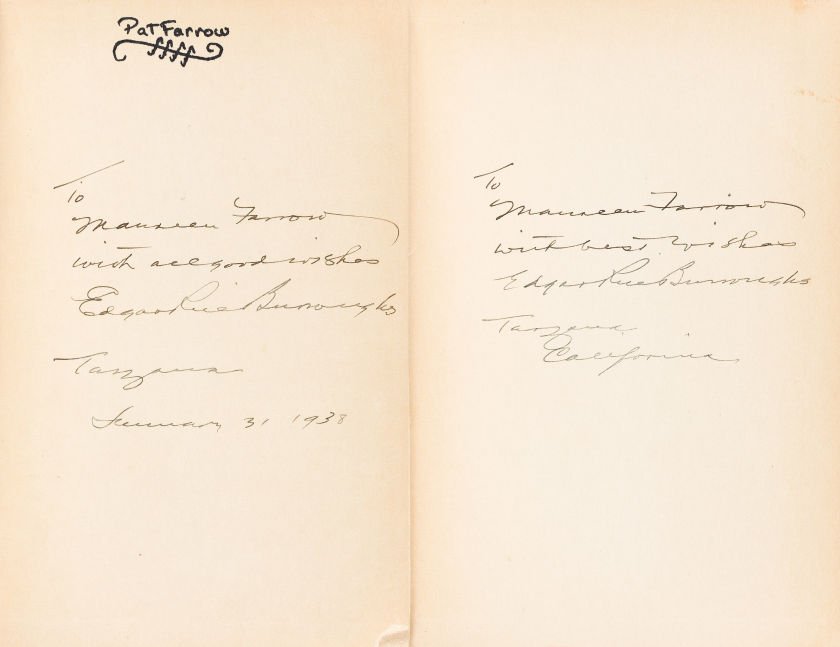 Pat Farrow
To
Maureen Farrow
with all good wishes
Edgar Rice Burroughs
Tarzana
January 31 1938
To
Maureen Farrow
with best wishes
Edgar Rice Burroughs
Tarzana
California